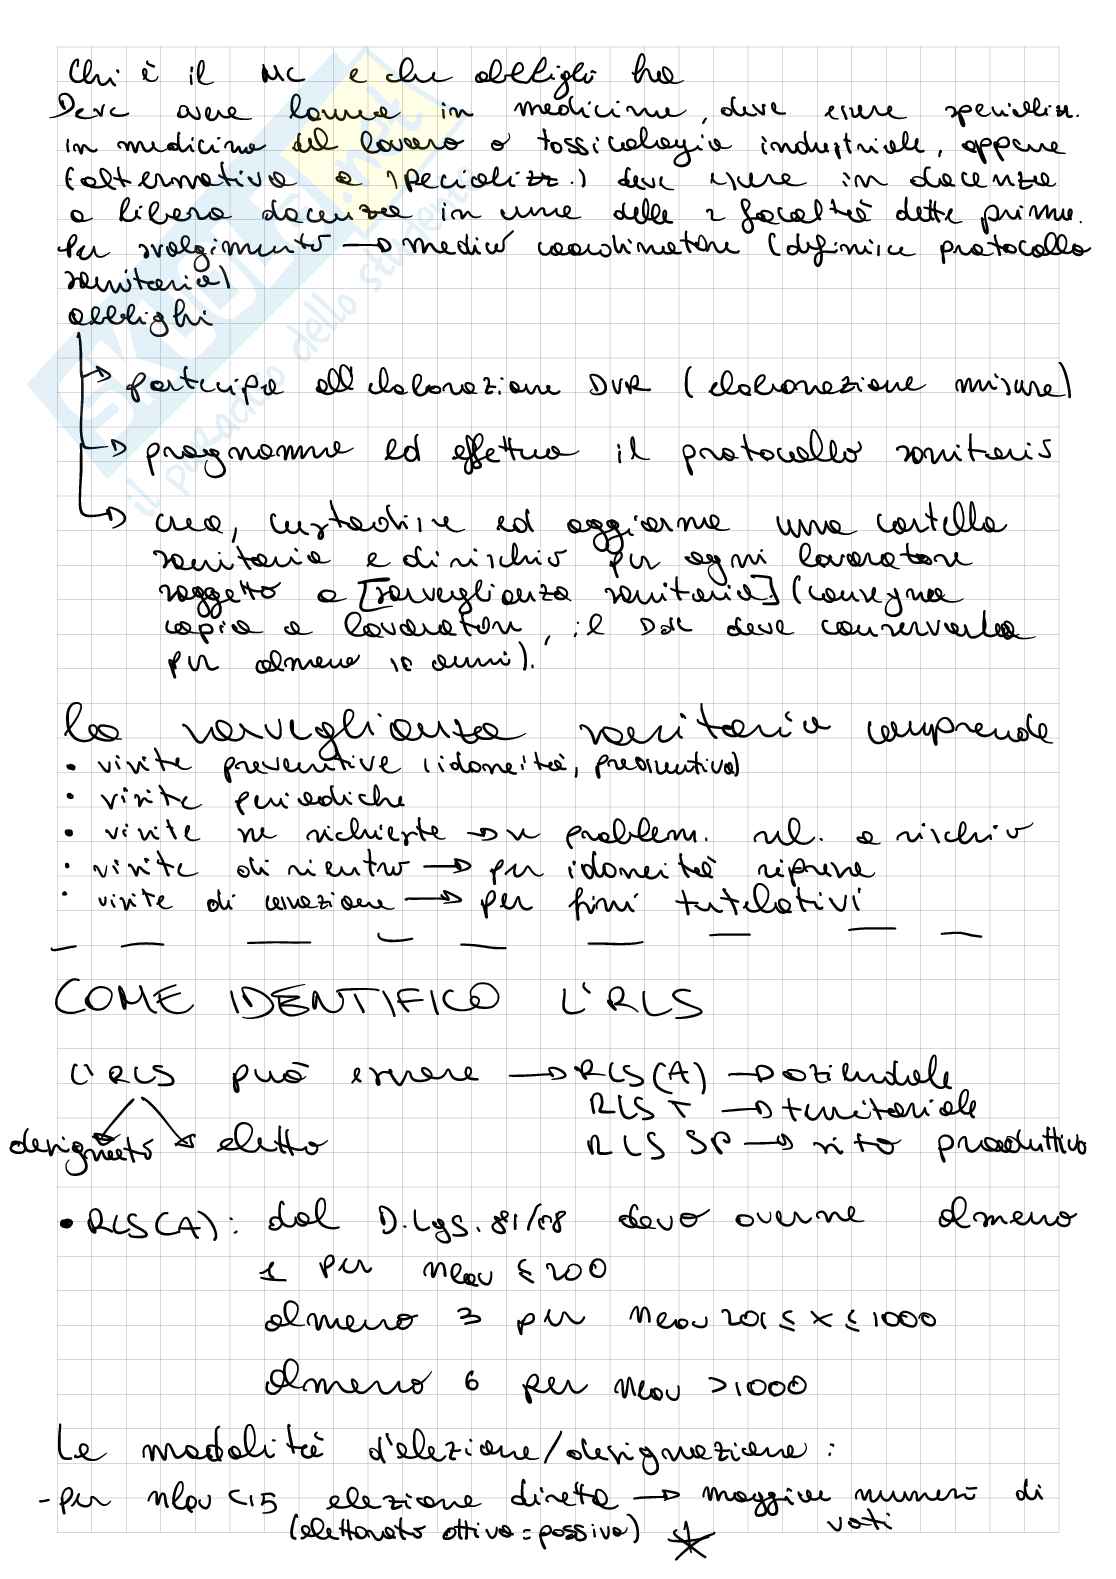 Chi è il MC e che obblighi ha
Deve avere laurea in medicina, deve essere specializz.
in medicina del lavoro o tossicologia industriale, oppure
(alternativa a specializz.) deve essere in docenza
o libera docenza in una delle 2 facoltà dette prima.
Per svolgimento → medico coordinatore (definisce protocollo
sanitario)
obblighi
→ partecipa all'elaborazione DVR (elaborazione misure)
→ programma ed effettua il protocollo sanitario
→ crea, custodisce ed aggiorna una cartella
sanitaria e di rischio per ogni lavoratore
soggetto a [sorveglianza sanitaria] (consegna
copia a lavoratori, il DdL deve conservarla
per almeno 10 anni).
La sorveglianza sanitaria comprende
• visite preventive (idoneità, preassuntiva)
• visite periodiche
• visite se richieste → se problem. rel. a rischio
• visite di rientro → per idoneità ripresa
• visite di cessazione → per fini tutelativi
COME IDENTIFICO L'RLS
L'RLS può essere → RLS(A) → aziendale
RLS T → territoriale
designato eletto RLS SP → sito produttivo
• RLS(A): dal D.Lgs. 81/08 devo averne almeno
1 per nlav ≤ 200
almeno 3 per nlav 201 ≤ x ≤ 1000
almeno 6 per nlav > 1000
Le modalità d'elezione/designazione:
- per nlav < 15 elezione diretta → maggior numero di
voti
(elettorato attivo = passivo)
SKUOLA.net
il paradiso dello studente